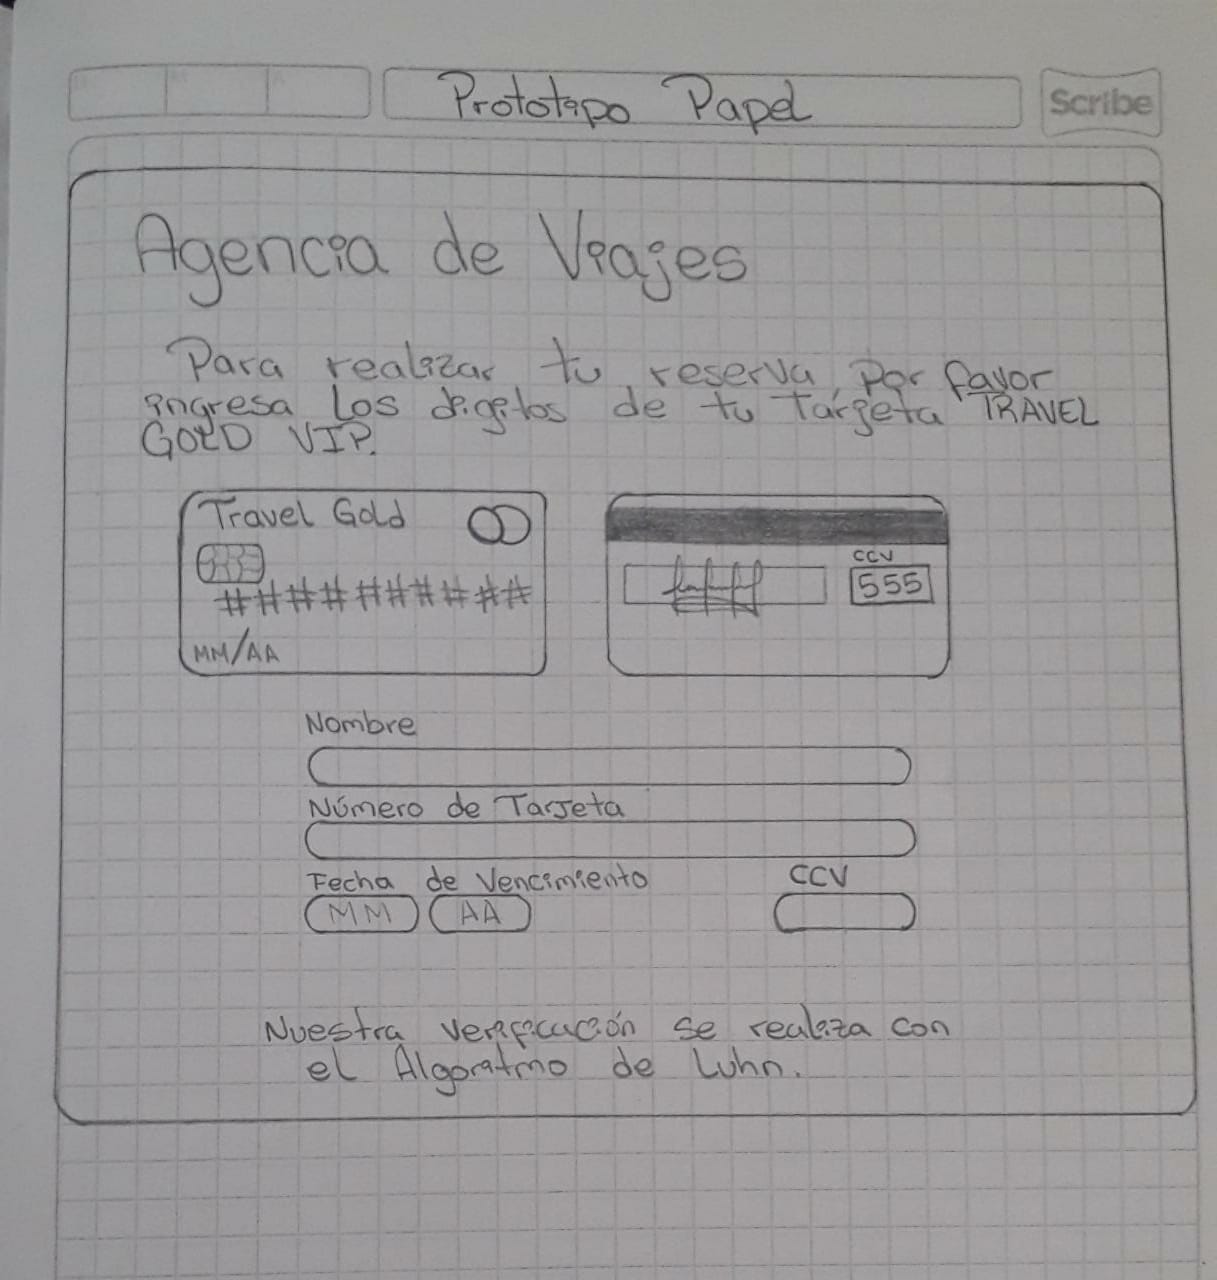 Prototipo Papel
Scribe
Agencia de Viajes
Para realizar tu reserva, por favor
ingresa los digitos de tu Tarjeta TRAVEL
GOLD VIP.
Travel Gold
##########
MM/AA
CCV
555
Nombre
Número de Tarjeta
Fecha de Vencimiento CCV
MM AA
Nuestra verificación se realiza con
el Algoritmo de Luhn.